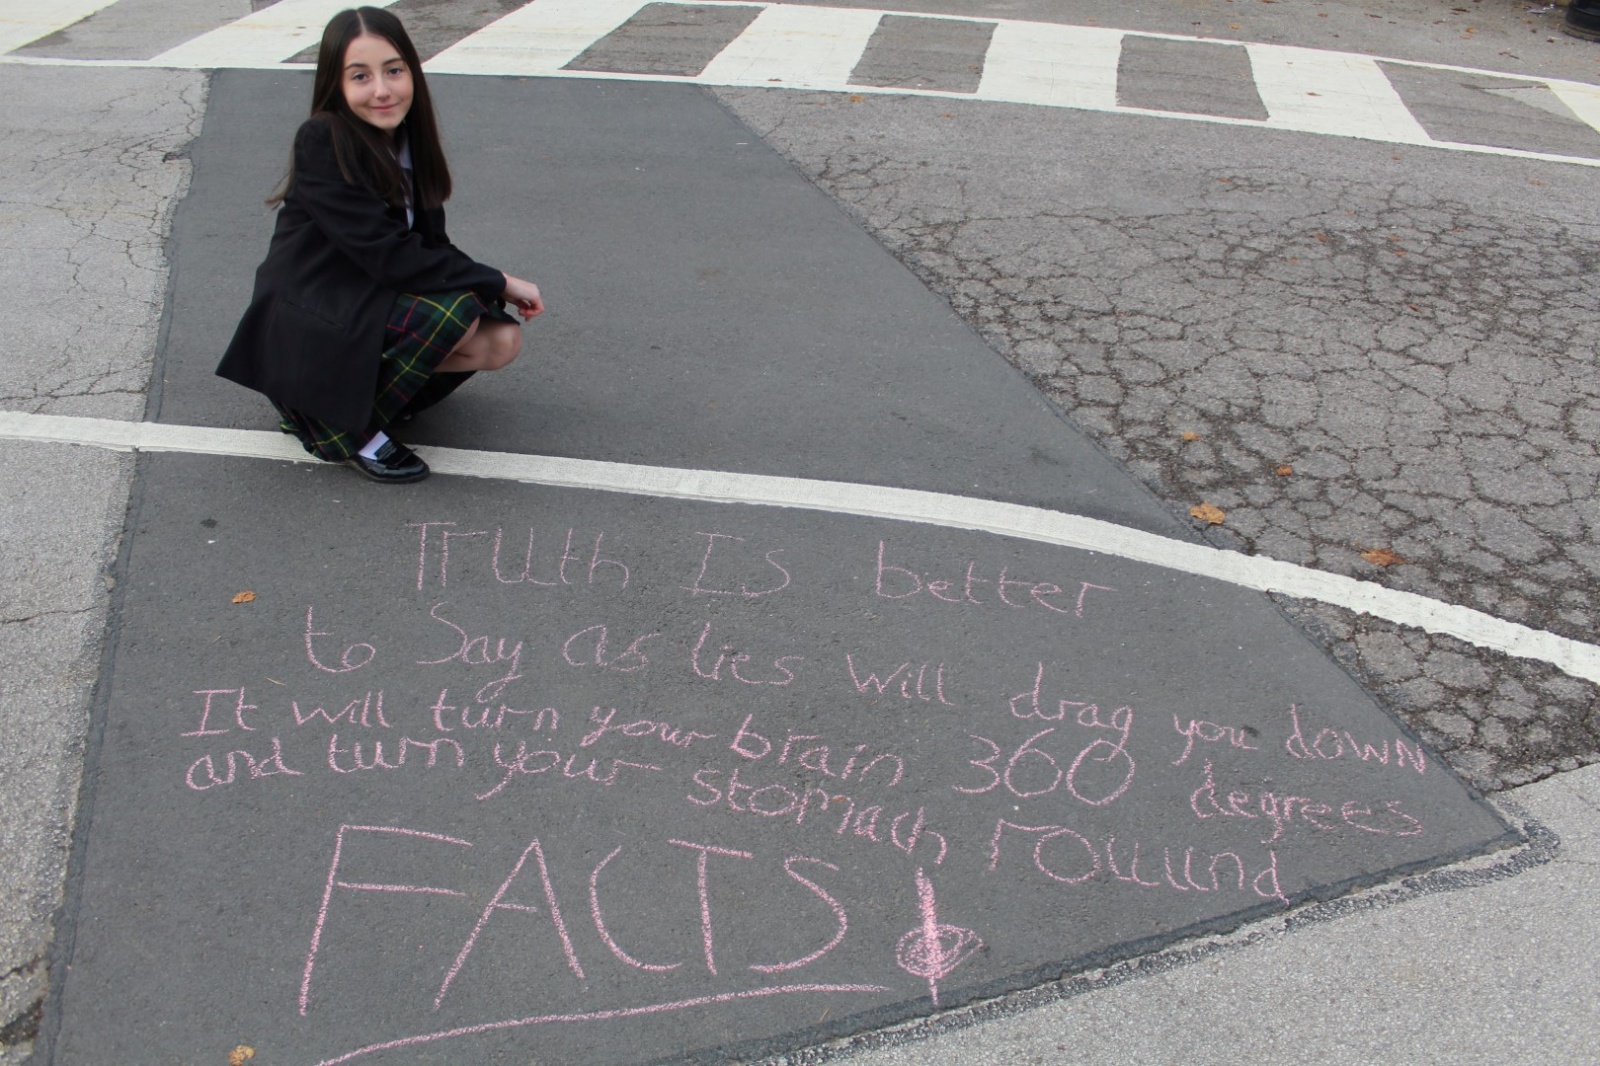 Truth Is better
to Say as lies will drag you down
It will turn your brain 360 degrees
and turn your stomach round
FACTS!